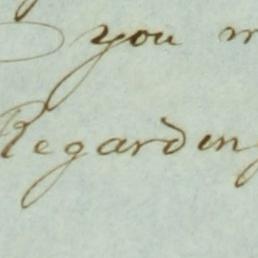 you
Regarding